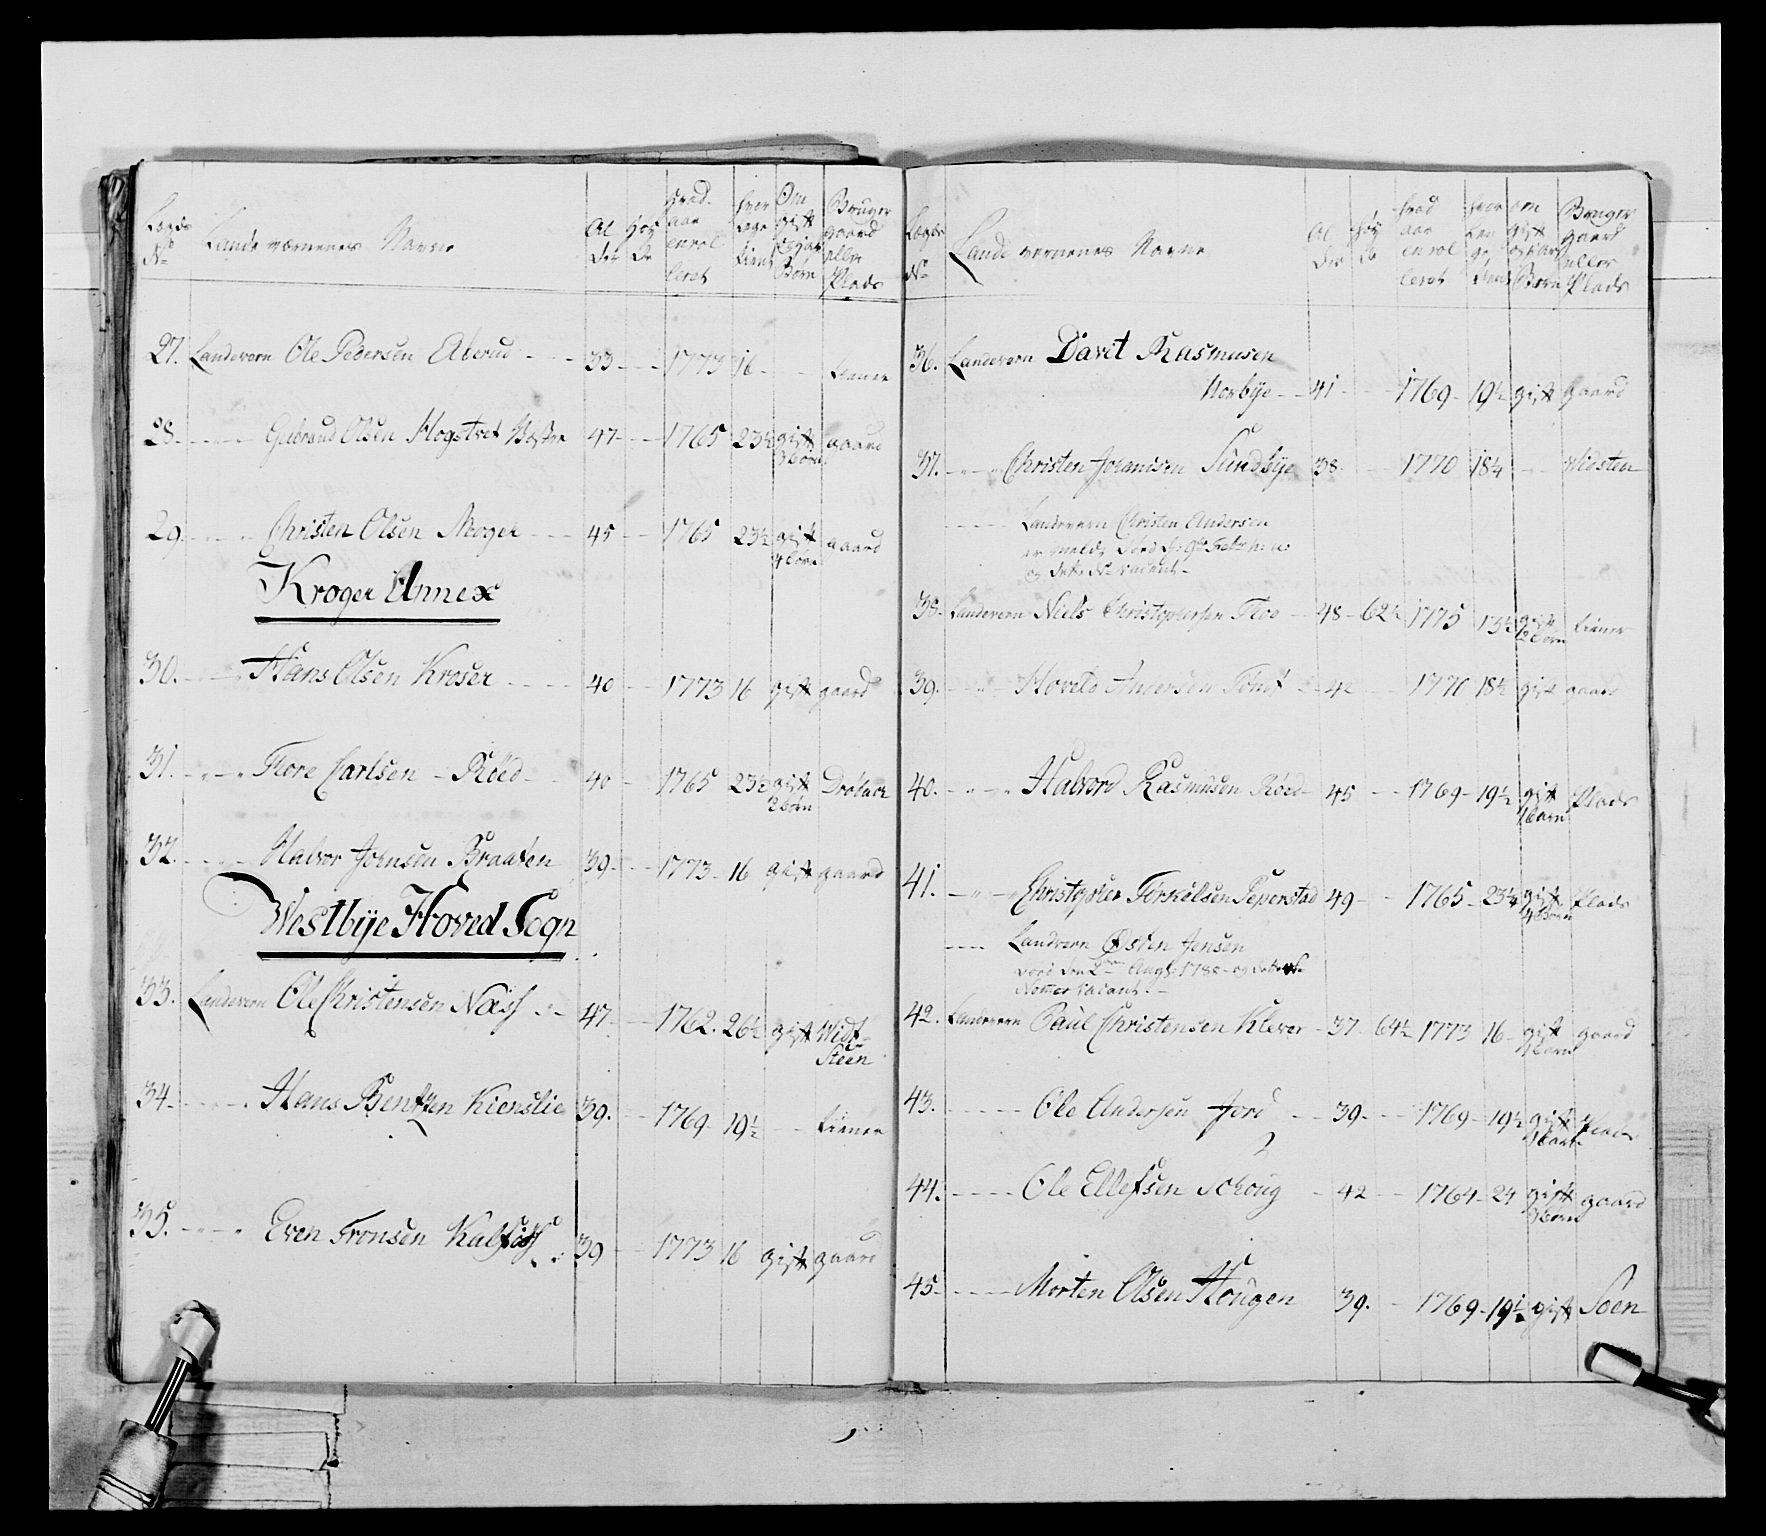 Lægds No
Landeværnenes Navne
Al der
Høy de
Hvad aar enrol leret
Hvor længe tient
Om gift og har Børn
Bruger gaard eller Plads
27. Landevern Ole Pedersen Aaerud 33 1773 16 tiener
28. Gulbrand Olsen Hogstvet Vestre 47 1765 23½ gift 3 børn gaard
29. Christen Olsen Moger 45 1765 23½ gift 4 børn gaard
Kroger Annex
30. Hans Olsen Kroser 40 1773 16 gift gaard
31. Tore Carlsen Röed 40 1765 23½ gift 2 børn Drøbach
32. Halvor Johnsen Braaten 39 1773 16 gift gaard
Westbÿe Hoved Sogn
33. Landevern Ole Christensen Næss 47 1762 26½ gift Widt-
Steen
34. Hans Bentzen Kienslie 39. 1769 19½ tiener
35. Even Tronsen Kalfoss 39 1773 16 gift gaard
Lægds No
Landeværnenes Navne
Al der
Høy de
Hvad aar enrol leret
Hvor længe tient
om gift og har Børn
Bruger gaard eller Plads
36. Landevern Davit Rasmusen
Norbÿe 41 1769 19½ gift gaard
37. Christen Johansen Sundbÿe 38 1770 18½ Widsten
Landevern Christen Andersen
er meldt Død
og dette No vacant
38. Landevern Niels Christophersen Floe 48 62½ 1775 13½ gift 2 børn tiener
39. Hoveld Andersen Tomt 42 1770 18½ gift gaard
40. Halvord Rasmusen Röed 45 1769 19½ gift 1 barn Plads
41. Christopher Torkelsen Pepperstad 49 1765 23½ gift 4 Børn Plads
Landvern Østen Jensen
Død den 2den Aug: 1788 og dette
Nomer vacant.
42. Landevern Paul Christensen Klever 37 64½ 1773 16 gift 1 barn gaard
43. Ole Andersen Hord 39 1769 19½ gift 1 barn Plads
44. Ole Ellefsen Schoug 42 1764 24 gift 3 børn gaard
45. Morten Olsen Hougen 39. 1769 19½ gift Soen